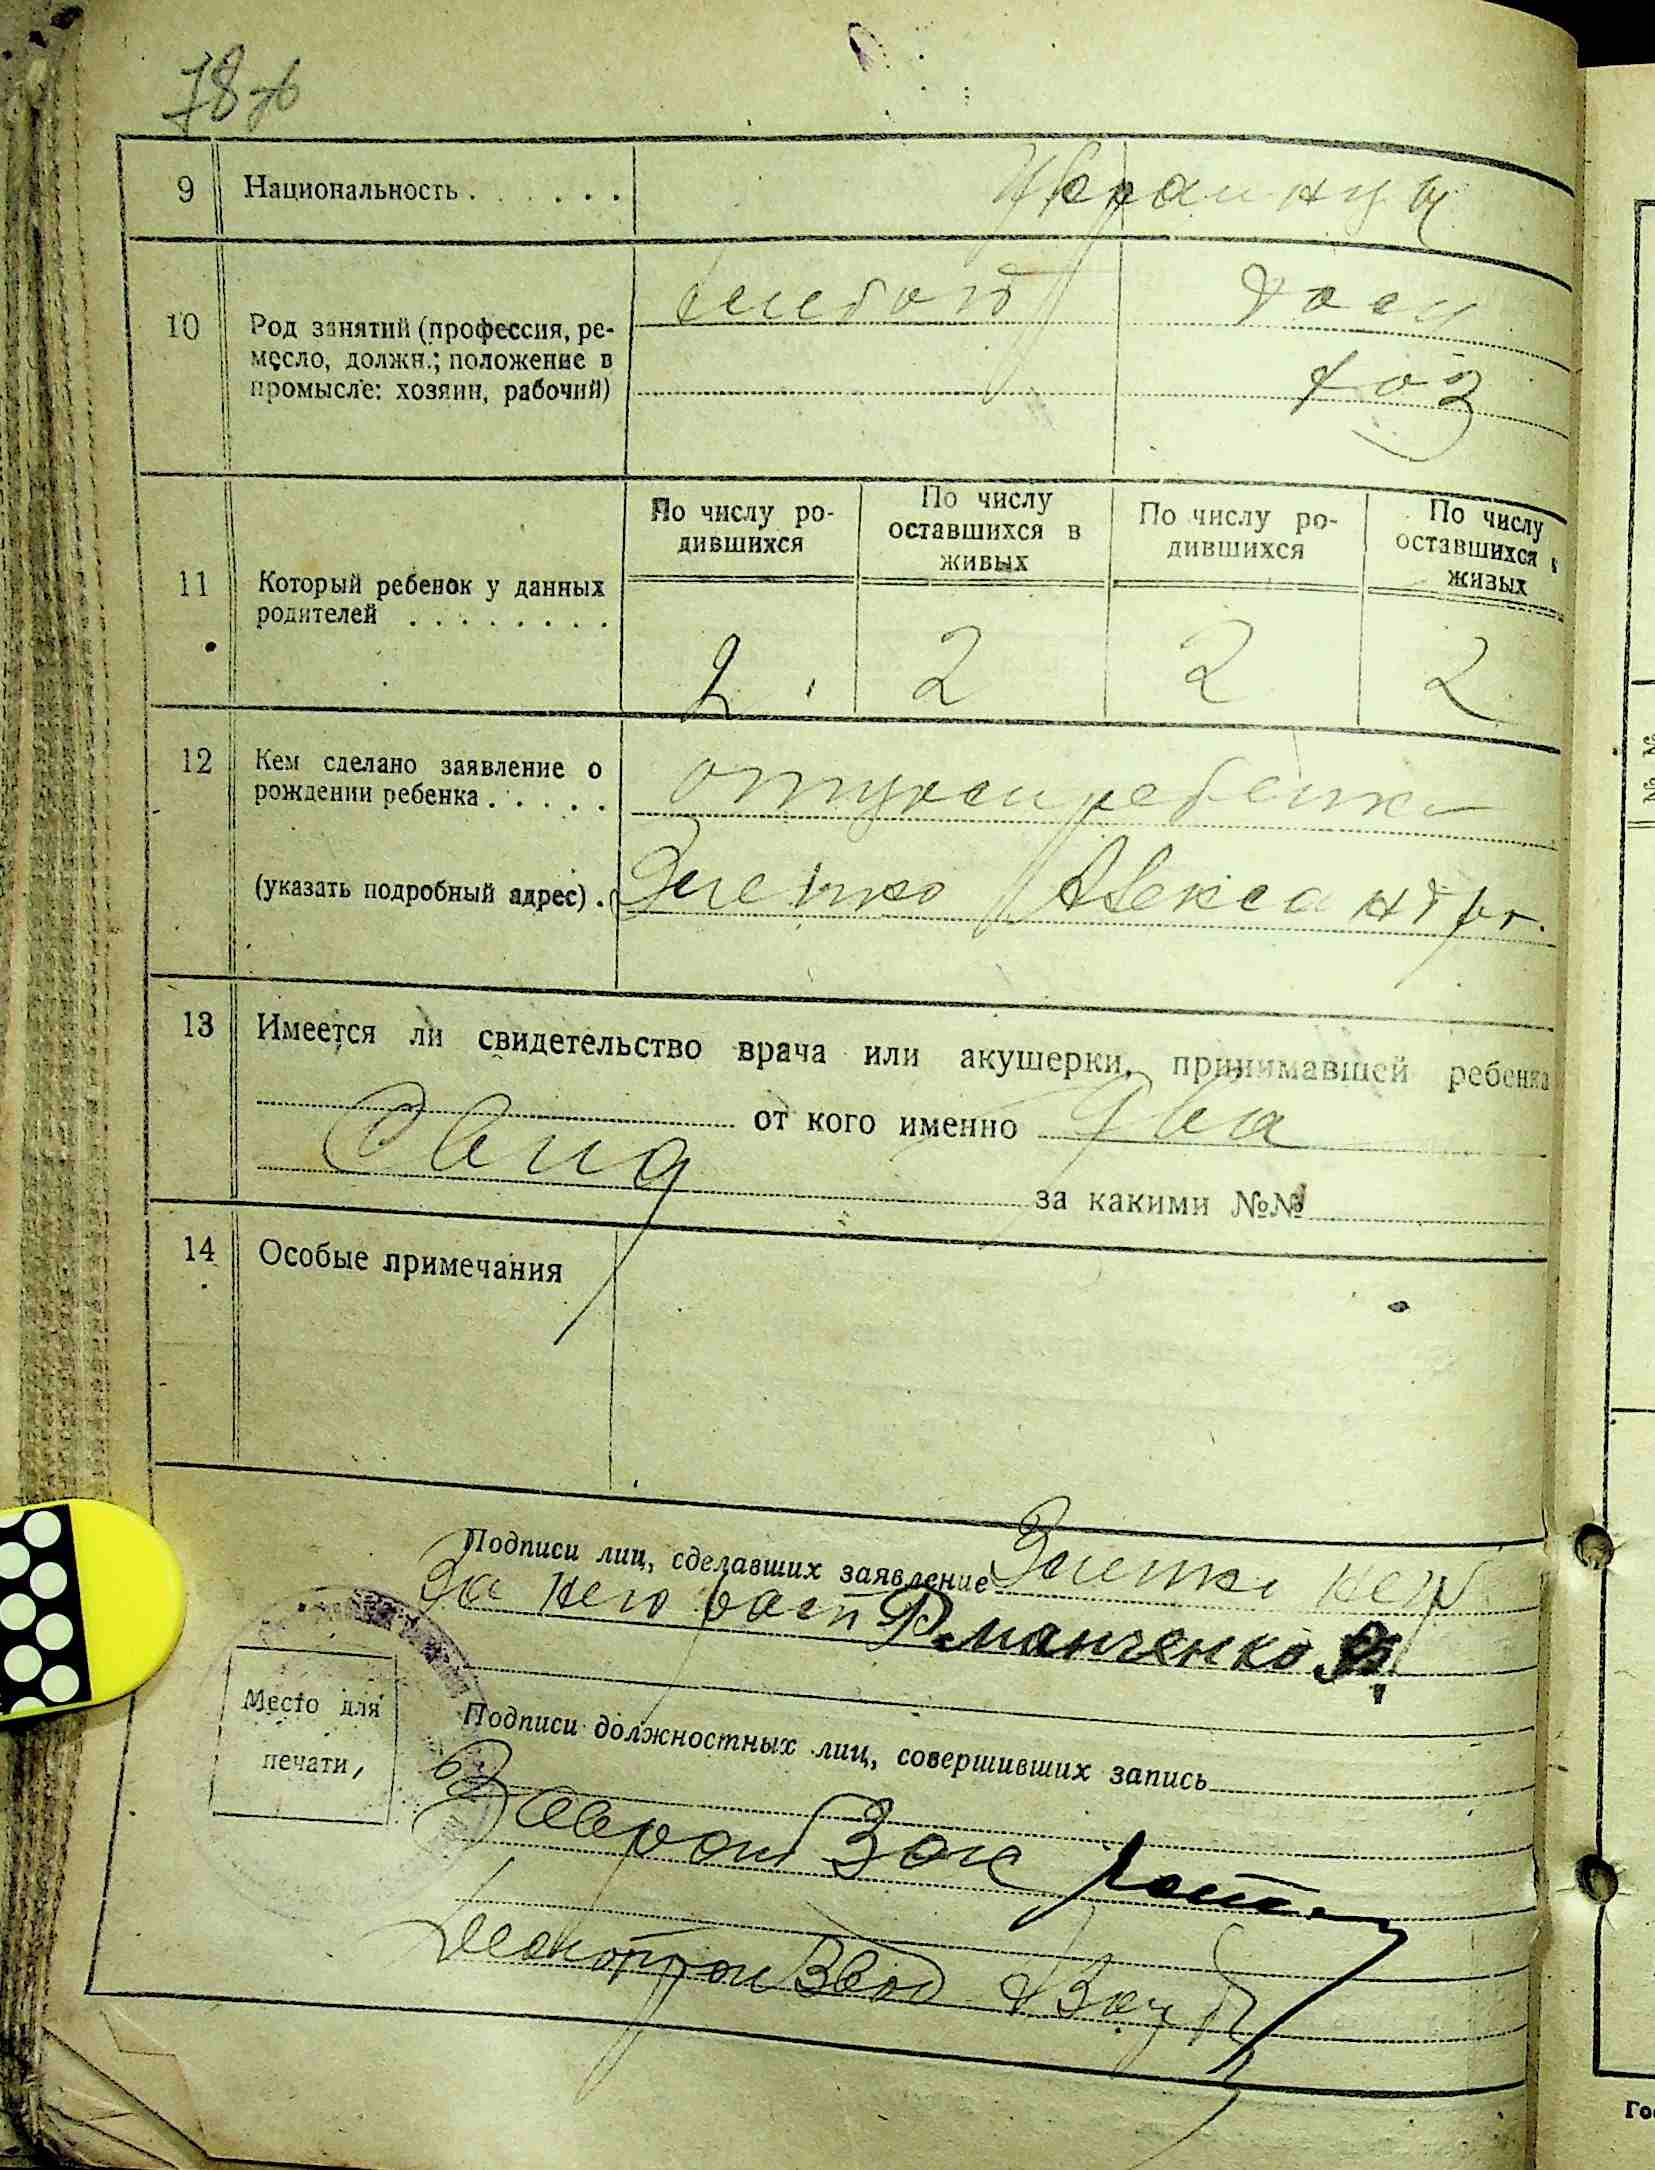 78 об
9 Национальность . . . . . . Украинцы
10 Род занятий (профессия, ре-
месло, должн.; положение в
промысле: хозяин, рабочий)
хоз
По числу ро-
дившихся
По числу
оставшихся в
живых
По числу ро-
дившихся
По числу
оставшихся в
живых
11 Который ребенок у данных
родителей . . . . . . . .
2 2 2 2
12 Кем сделано заявление о
рождении ребенка . . . . . отцом ребенка
(указать подробный адрес) . Зленко Александр.
13 Имеется ли свидетельство врача или акушерки, принимавшей ребенка
от кого именно два
Свид
за какими №№
14 Особые примечания
Подписи лиц, сделавших заявление Зленко негр
За него расп Романченко
Место для
печати
Подписи должностных лиц, совершивших запись
Заврай Загс
Делопроизвод
Гос